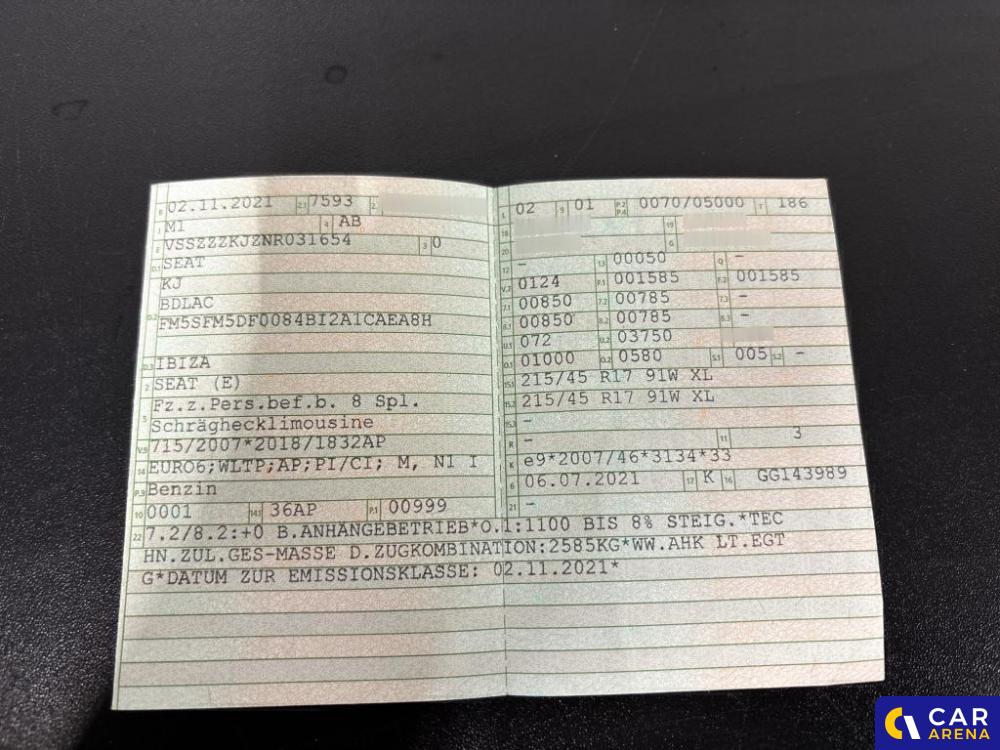 B 02.11.2021 2.1 7593 2.2
J M1 4 AB
E VSSZZZKJZNR031654 3 0
D.1 SEAT
KJ
D.2 BDLAC
FM5SFM5DF0084BI2A1CAEA8H
D.3 IBIZA
2 SEAT (E)
5 Fz.z.Pers.bef.b. 8 Spl.
Schräghecklimousine
V.9 715/2007*2018/1832AP
14 EURO6;WLTP;AP;PI/CI; M, N1 I
P.3 Benzin
10 0001 14.1 36AP P.1 00999
L 02 9 01 P.2 P.4 0070/05000 T 186
18 19
20 G
12 - 13 00050 Q -
V.7 0124 F.1 001585 F.2 001585
7.1 00850 7.2 00785 7.3 -
8.1 00850 8.2 00785 8.3 -
U.1 072 U.2 03750
O.1 01000 O.2 0580 S.1 005 S.2 -
15.1 215/45 R17 91W XL
15.2 215/45 R17 91W XL
15.3 -
R - 11 3
K e9*2007/46*3134*33
6 06.07.2021 17 K 16 GG143989
21 -
22 7.2/8.2:+0 B.ANHÄNGEBETRIEB*O.1:1100 BIS 8% STEIG.*TEC
HN.ZUL.GES-MASSE D.ZUGKOMBINATION:2585KG*WW.AHK LT.EGT
G*DATUM ZUR EMISSIONSKLASSE: 02.11.2021*
CAR
ARENA